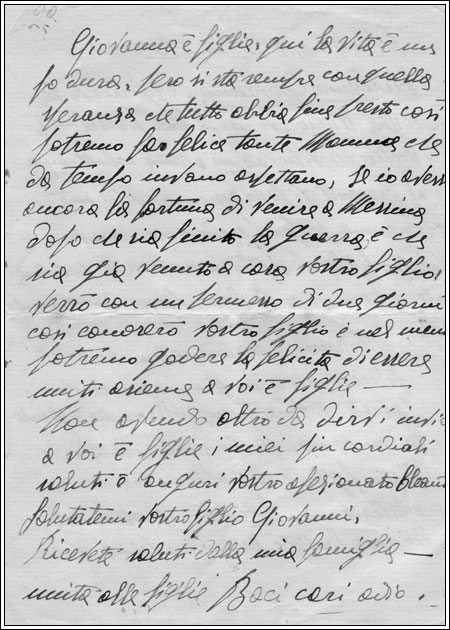 Giovanna è figlie, qui la vita è un
po dura, pero si stà sempre con quella
speransa che tutto abbia fine presto così
potremo far felice tante Mamme che
da tempo invano aspettano, se io avessi
ancora la fortuna di venire a Messina
dopo che sia finita la guerra è che
sia già venuto a casa vostro figlio,
verrò con un permesso di due giorni
così conoserò vostro figlio è nel mem
potremo godere la felicità di essere
uniti asieme a voi è figlie —
Non avendo altro da dirvi invio
a voi è figlie i miei più cordiali
saluti è auguri vostro afezionato
Salutatemi vostro figlio Giovanni,
Ricevete saluti dalla mia famiglia —
unita alle figlie Baci cari adio.